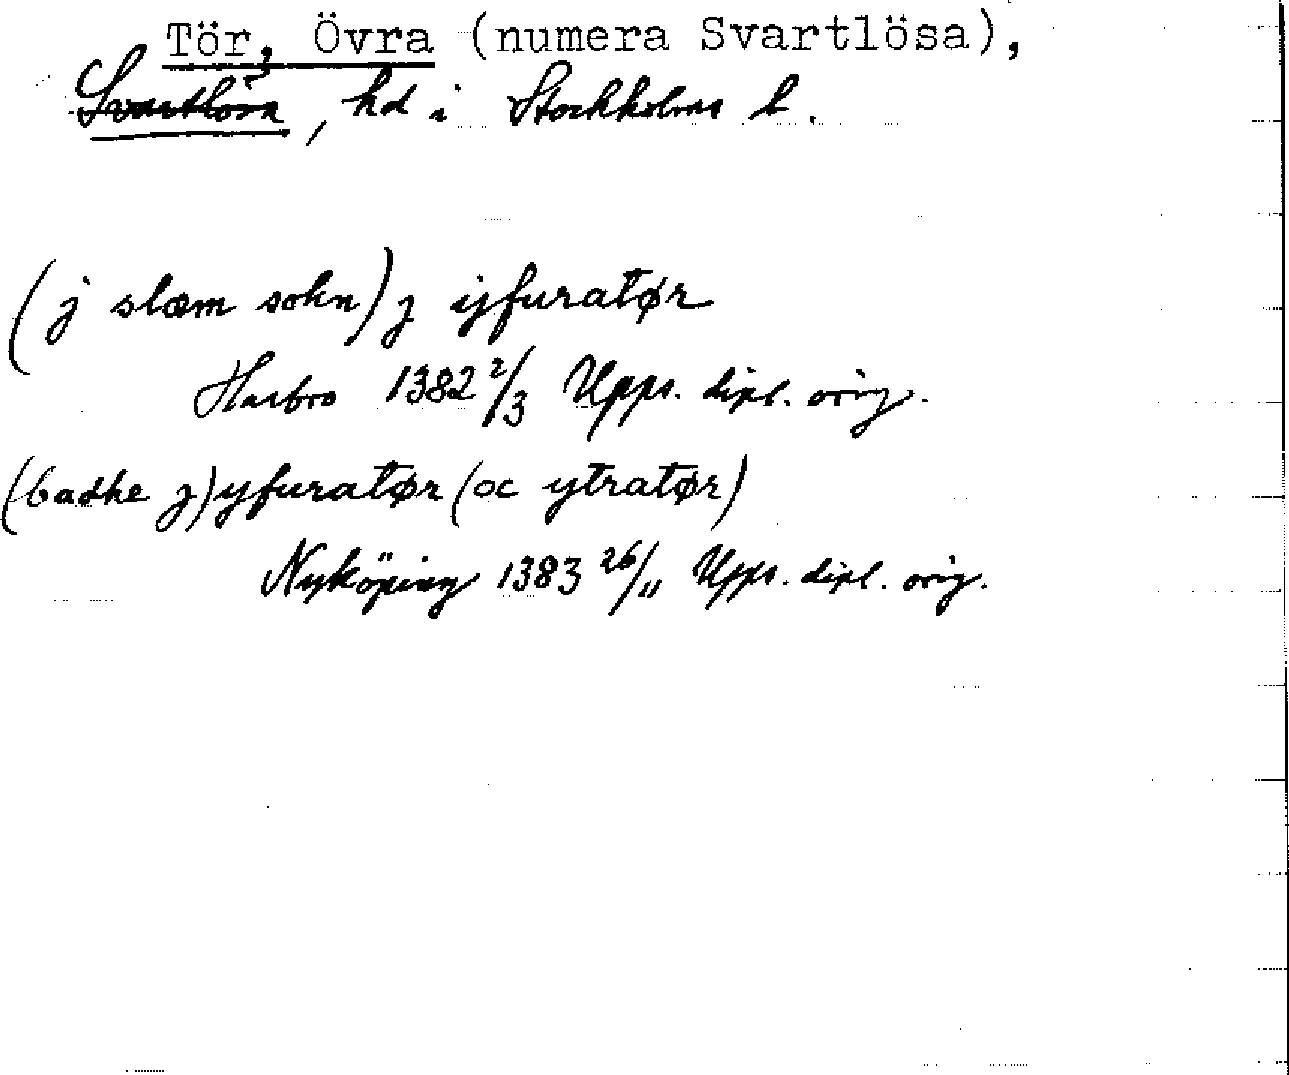 Tör, Övra (numera Svartlösa),
Svartlösa, hd i Stockholms l.
(j slæm sokn) j ijfuratør
Harbro 1382 2/3 Upps. dipl. orig.
(badhe j) yfuratør (oc ytratør)
Nyköping 1383 26/11 Upps. dipl. orig.